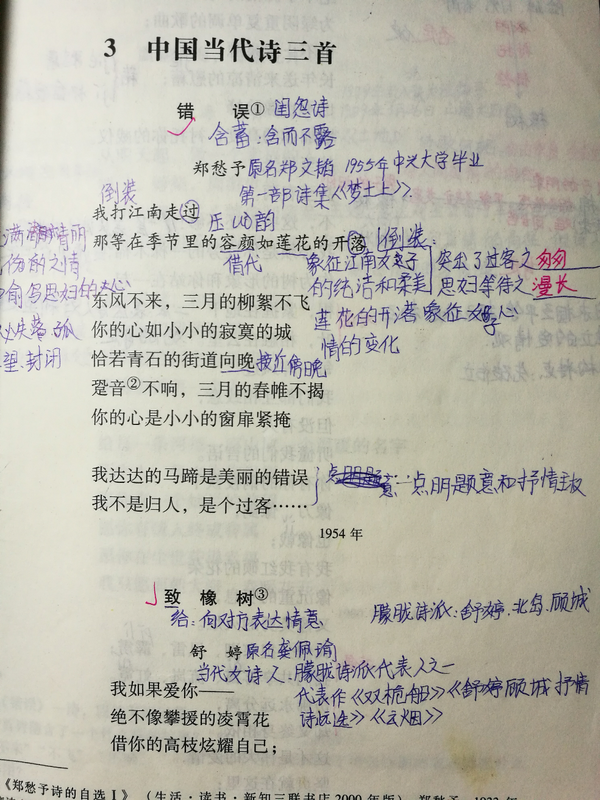 3 中国当代诗三首
错 误① 闺怨诗
含蓄:含而不露
郑愁予 原名郑文韬 1955年中兴大学毕业
第一部诗集《梦土上》
倒装
我打江南走过
压uo韵
那等在季节里的容颜如莲花的开落
倒装:
借代
象征江南女子
的纯洁和柔美
突出了过客之匆匆
思妇等待之漫长
莲花的开落象征女子心
情的变化
东风不来,三月的柳絮不飞
你的心如小小的寂寞的城
恰若青石的街道向晚 接近傍晚
跫音②不响,三月的春帷不揭
你的心是小小的窗扉紧掩
望,封闭
我达达的马蹄是美丽的错误
我不是归人,是个过客……
点明题意和抒情主
1954 年
致 橡 树③
给:向对方表达情意
朦胧诗派:舒婷、北岛、顾城
舒 婷 原名龚佩瑜
当代女诗人,朦胧诗派代表人之一
代表作《双桅船》《舒婷顾城抒情
诗选》《会唱
我如果爱你——
绝不像攀援的凌霄花
借你的高枝炫耀自己;
《郑愁予诗的自选Ⅰ》(生活·读书·新知三联书店2000年版)